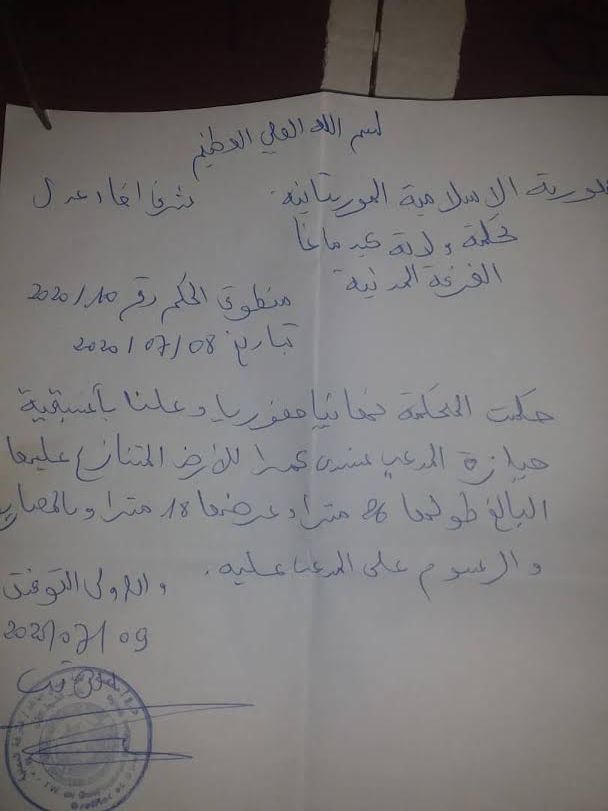 بسم الله العلي العظيم
الاسلامية الموريتانية شرف اخاء عدل
محكمة ولاية كيدماغا
الغرفة المدنية
منطوق الحكم رقم 2020/10
بتاريخ 2020/07/08
حكمت المحكمة نهائيا حضوريا وعلنا بأسبقية
حيازة المدعي للأرض المتنازع عليها
البالغ طولها 26 مترا وعرضها 18 مترا وبالمصاريف
والرسوم على المدعى عليه. والله ولي التوفيق
2020/07/09